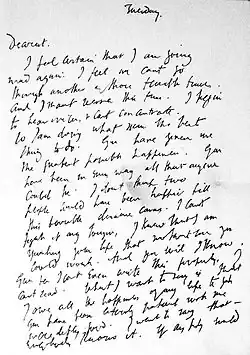 Tuesday.
Dearest.
I feel certain that I am going
mad again: I feel we cant go
through another of those terrible times.
And I shant recover this time. I begin
to hear voices, & cant concentrate.
So I am doing what seems the best
thing to do. You have given me
the greatest possible happiness. You
have been in every way all that anyone
could be. I dont think two
people could have been happier till
this terrible disease came. I cant
fight it any longer, I know that I am
spoiling your life, that without me you
could work. And you will I know.
You see I cant even write this properly. I
cant read. What I want to say is that
I owe all the happiness of my life to you.
You have been entirely patient with me
& incredibly good. I want to say that –
everybody knows it. If anybody could